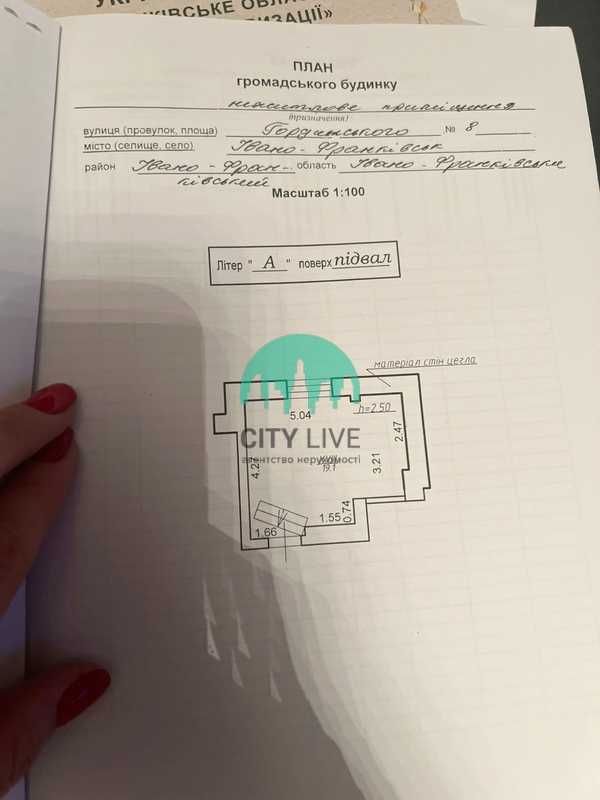 КІВСЬКЕ ОБЛАС
ИЗАЦІЇ»
ПЛАН
громадського будинку
нежитлове приміщення
(призначення)
вулиця (провулок, площа) Гординського № 8
місто (селище, село) Івано-Франківськ
район Івано-Фран- область Івано-Франківськ
ківський
Масштаб 1:100
Літер "А" поверх підвал
матеріал стін цегла
5.04
h=2.50
2.47
CITY LIVE
агентство нерухомості
3.21
19.1
4.2
0.74
1.55
1.66